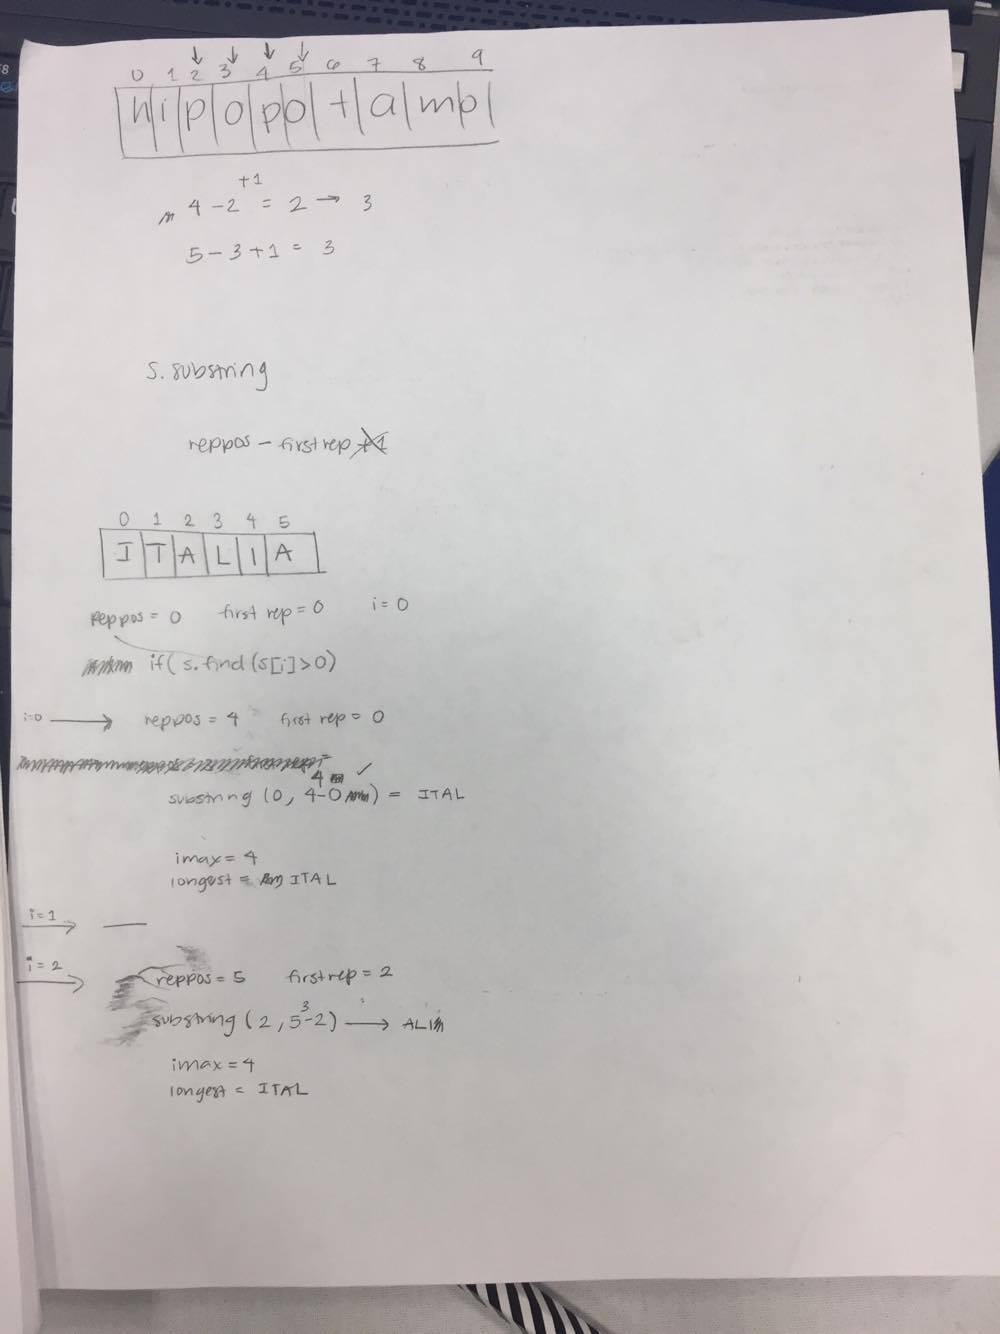 0 1 2 3 4 5 6 7 8 9
h i p o p o t a m p
+1
4 - 2 = 2 → 3
5 - 3 + 1 = 3
s. substring
reppos - first rep +1
0 1 2 3 4 5
I T A L I A
reppos = 0 first rep = 0 i = 0
if( s.find(s[i]>0)
i=0 → reppos = 4 first rep = 0
4 ✓
substring (0, 4-0) = ITAL
imax = 4
longest = ITAL
i=1 → —
i=2 → reppos = 5 first rep = 2
3
substring (2, 5-2) → ALI
imax = 4
longest = ITAL